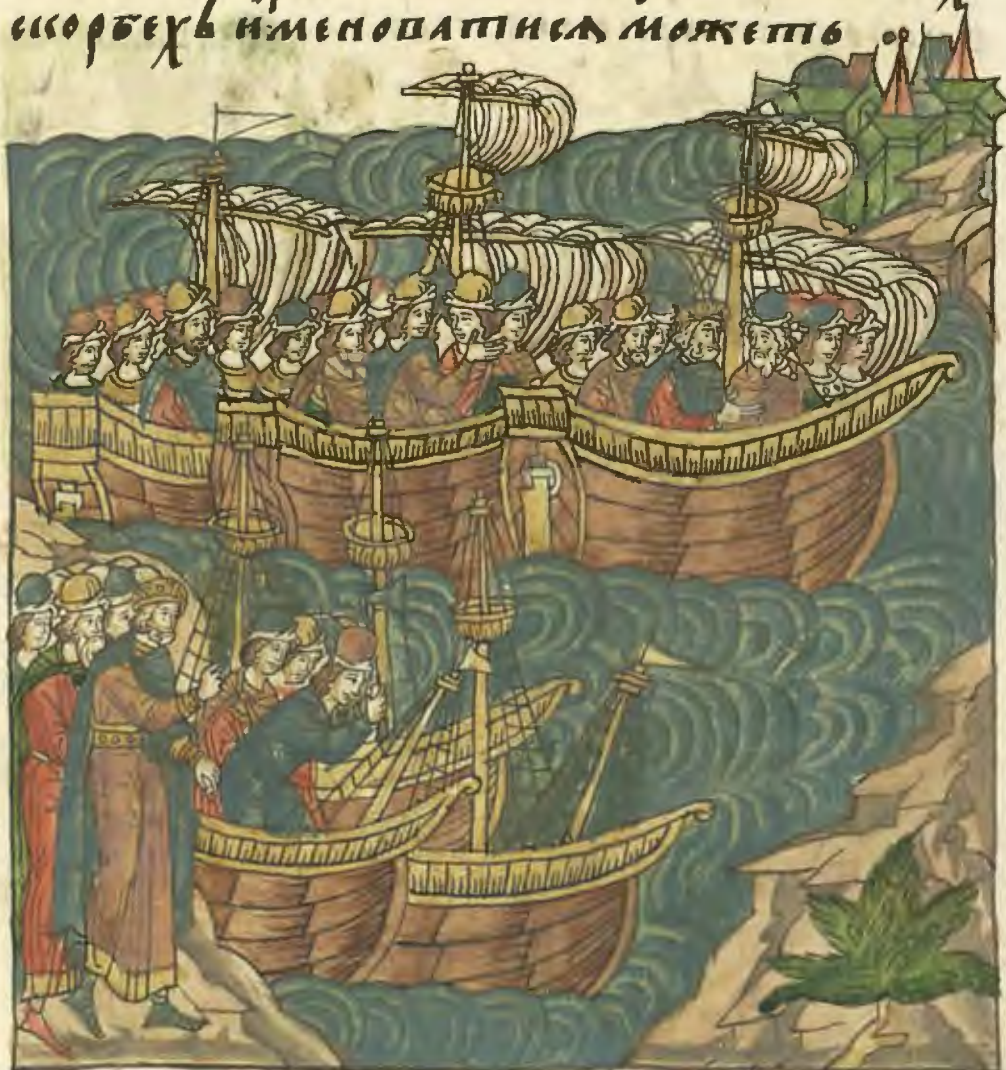 скорбехъ именоватися можетъ